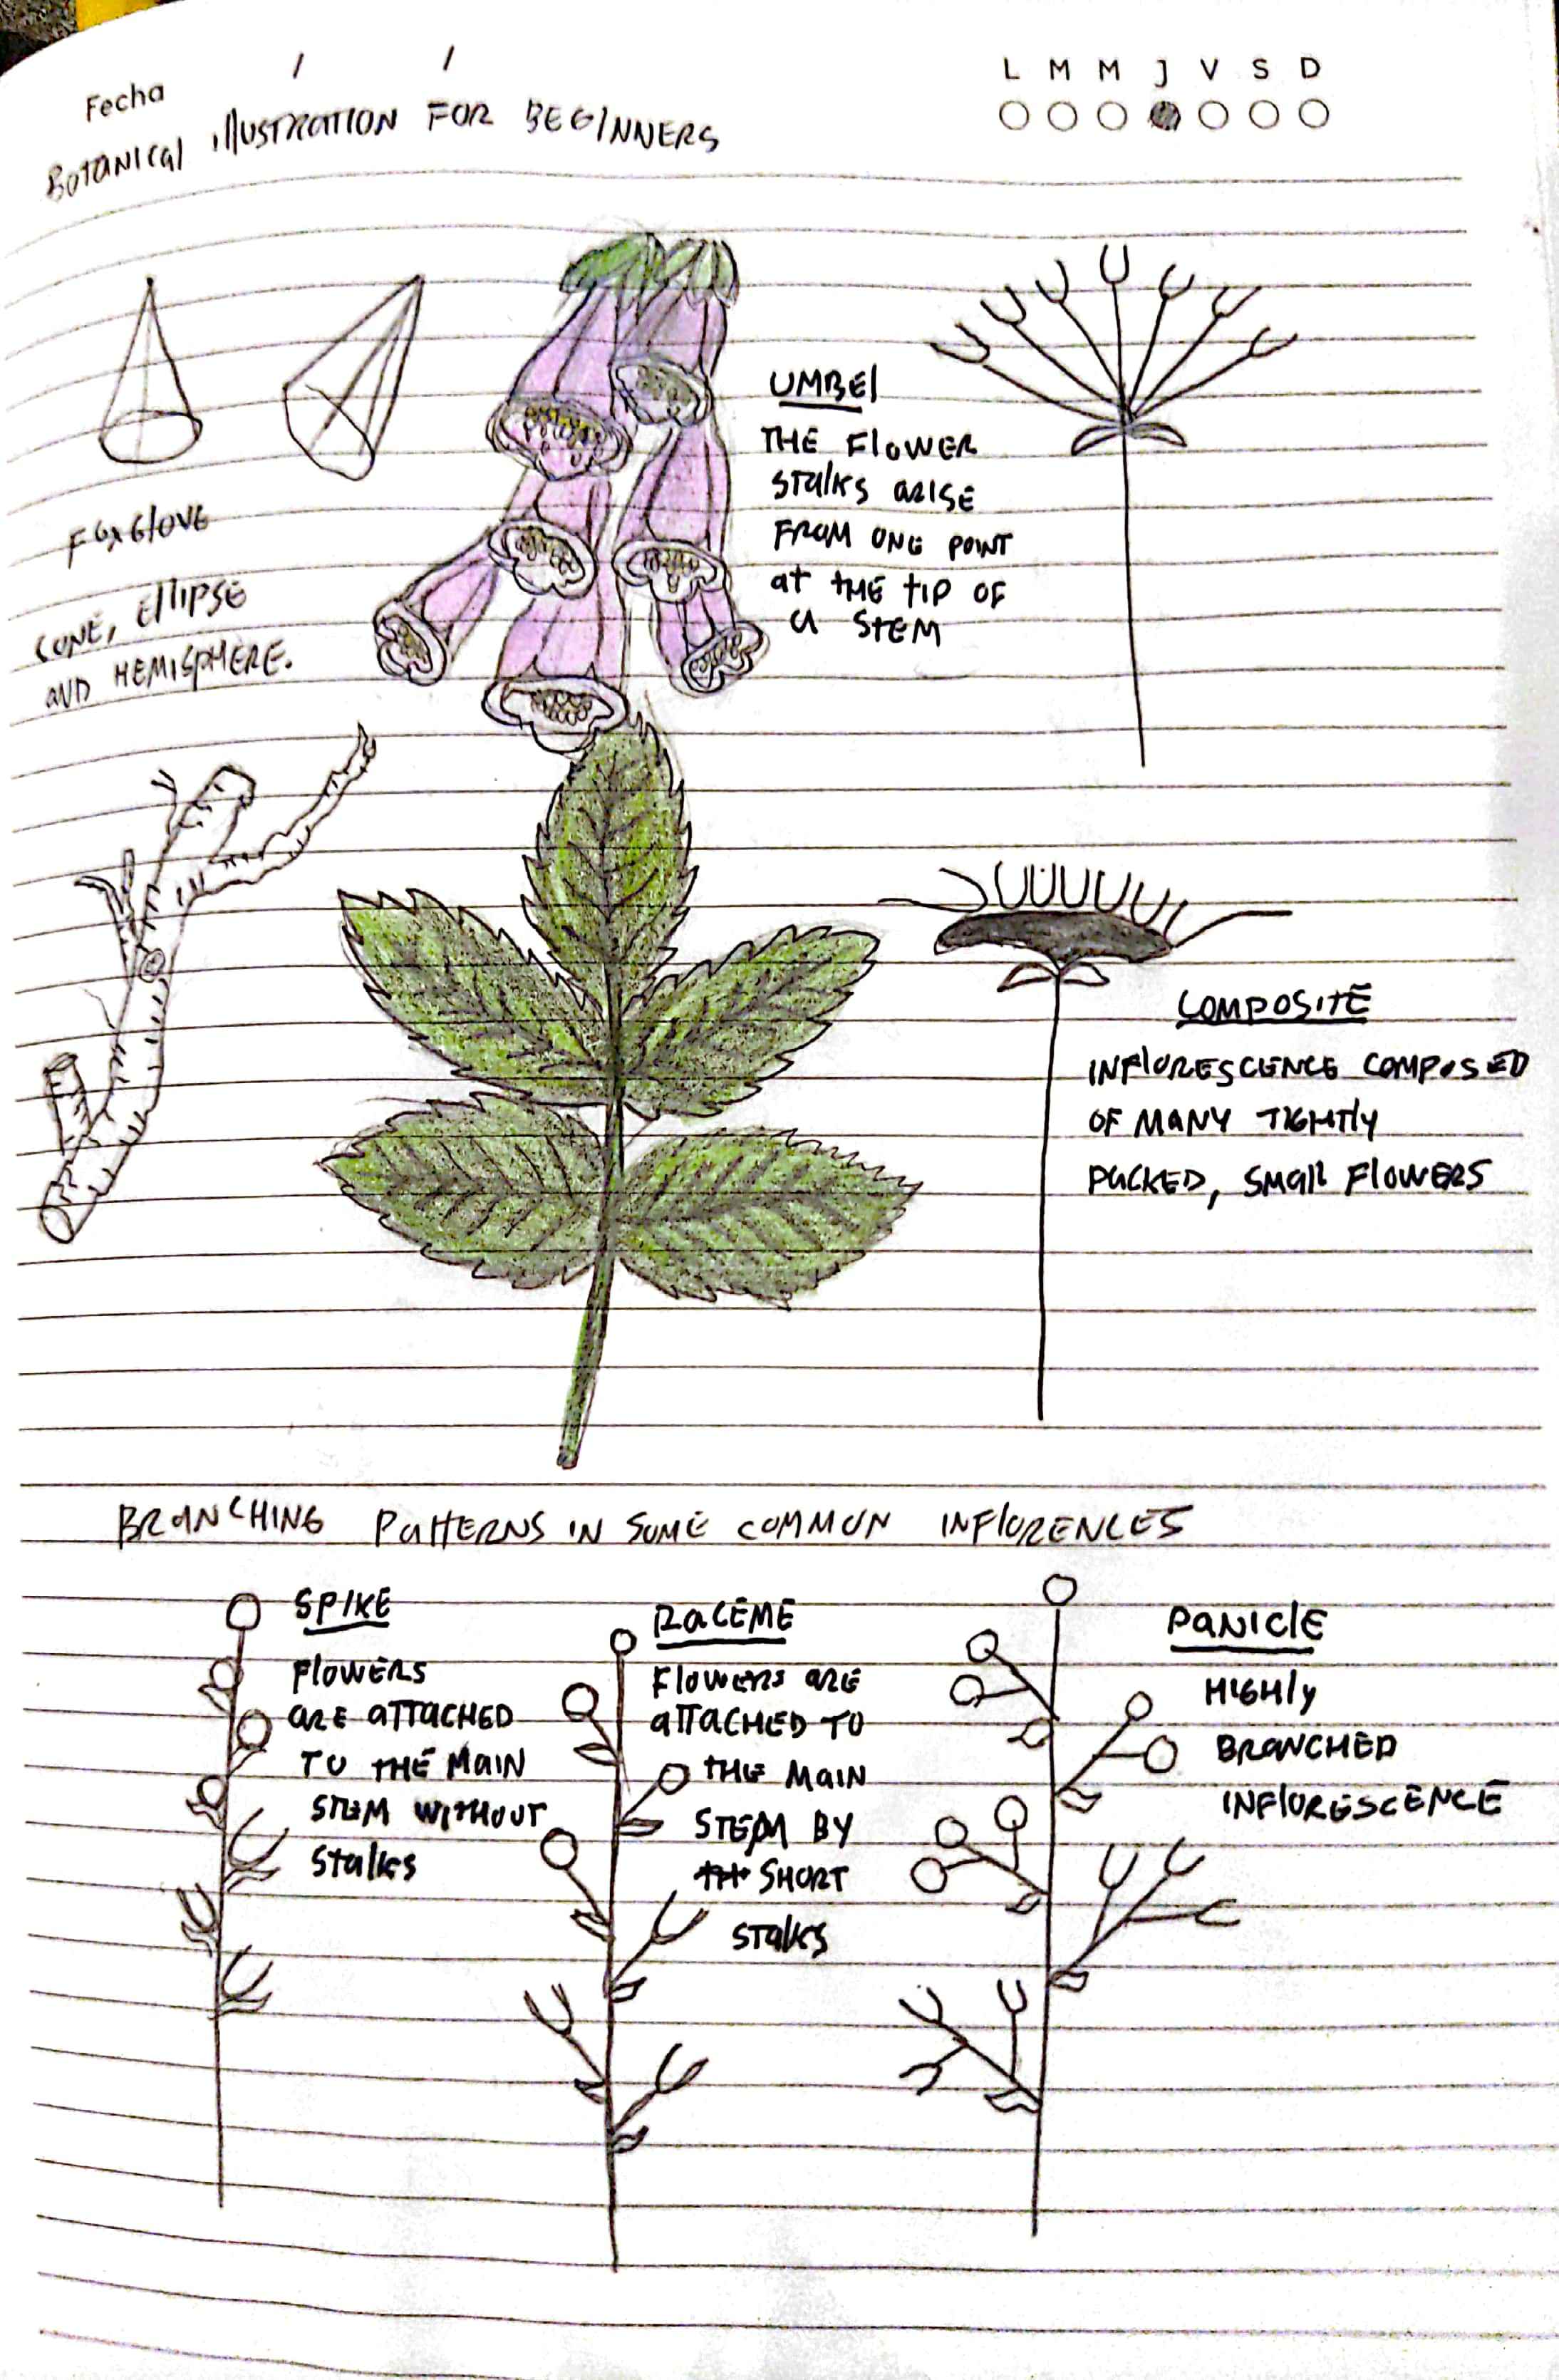 Fecha / /
L M M J V S D
BOTANICAL ILLUSTRATION FOR BEGINNERS
FOXGLOVE
CONE, ELLIPSE
AND HEMISPHERE.
UMBEL
THE FLOWER
STALKS ARISE
FROM ONE POINT
AT THE TIP OF
A STEM
COMPOSITE
INFLORESCENCE COMPOSED
OF MANY TIGHTLY
PACKED, SMALL FLOWERS
BRANCHING PATTERNS IN SOME COMMON INFLORENCES
SPIKE
FLOWERS
ARE ATTACHED
TO THE MAIN
STEM WITHOUT
STALKS
RACEME
FLOWERS ARE
ATTACHED TO
THE MAIN
STEM BY
SHORT
STALKS
PANICLE
HIGHLY
BRANCHED
INFLORESCENCE